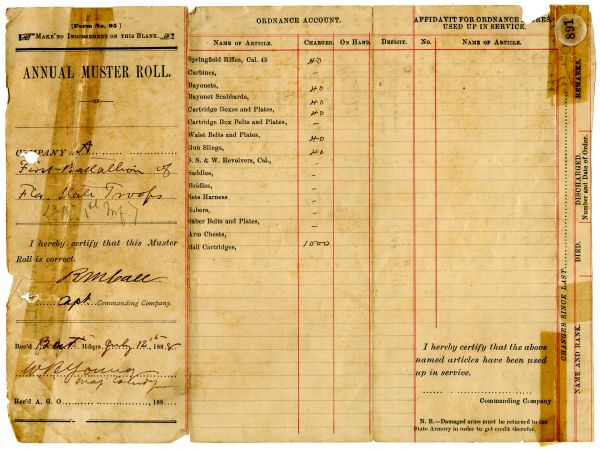 [Form No. 95]
MAKE NO INDORSEMENT ON THIS BLANK.
ANNUAL MUSTER ROLL.
—OF—
COMPANY A
First Battallion of
Fla State Troops
I hereby certify that this Muster
Roll is correct.
R M Call
Capt. Commanding Company.
Rec'd Bat Hdqrs. July 12th 1888
W B Young
Maj Comdg
Rec'd A. G. O. 188
ORDNANCE ACCOUNT.
NAME OF ARTICLE. CHARGED. ON HAND. DEFICIT.
Springfield Rifles, Cal. 45 40
Carbines, –
Bayonets, 40
Bayonet Scabbards,
Cartridge Boxes and Plates, 40
Cartridge Box Belts and Plates, –
Waist Belts and Plates, 40
Gun Slings, 40
S. S. & W. Revolvers, Cal., –
Saddles, –
Bridles, –
Sets Harness –
Sabers, –
Saber Belts and Plates, –
Arm Chests, –
Ball Cartridges, 1000
AFFIDAVIT FOR ORDNANCE
USED UP IN SERVICE.
No. NAME OF ARTICLE.
I hereby certify that the above
named articles have been used
up in service.
Commanding Company.
N. B.—Damaged arms must be returned to the
State Armory in order to get credit therefor.
891
CHANGES SINCE LAST
NAME AND RANK. DIED. DISCHARGED. REMARKS.
Number and Date of Order.